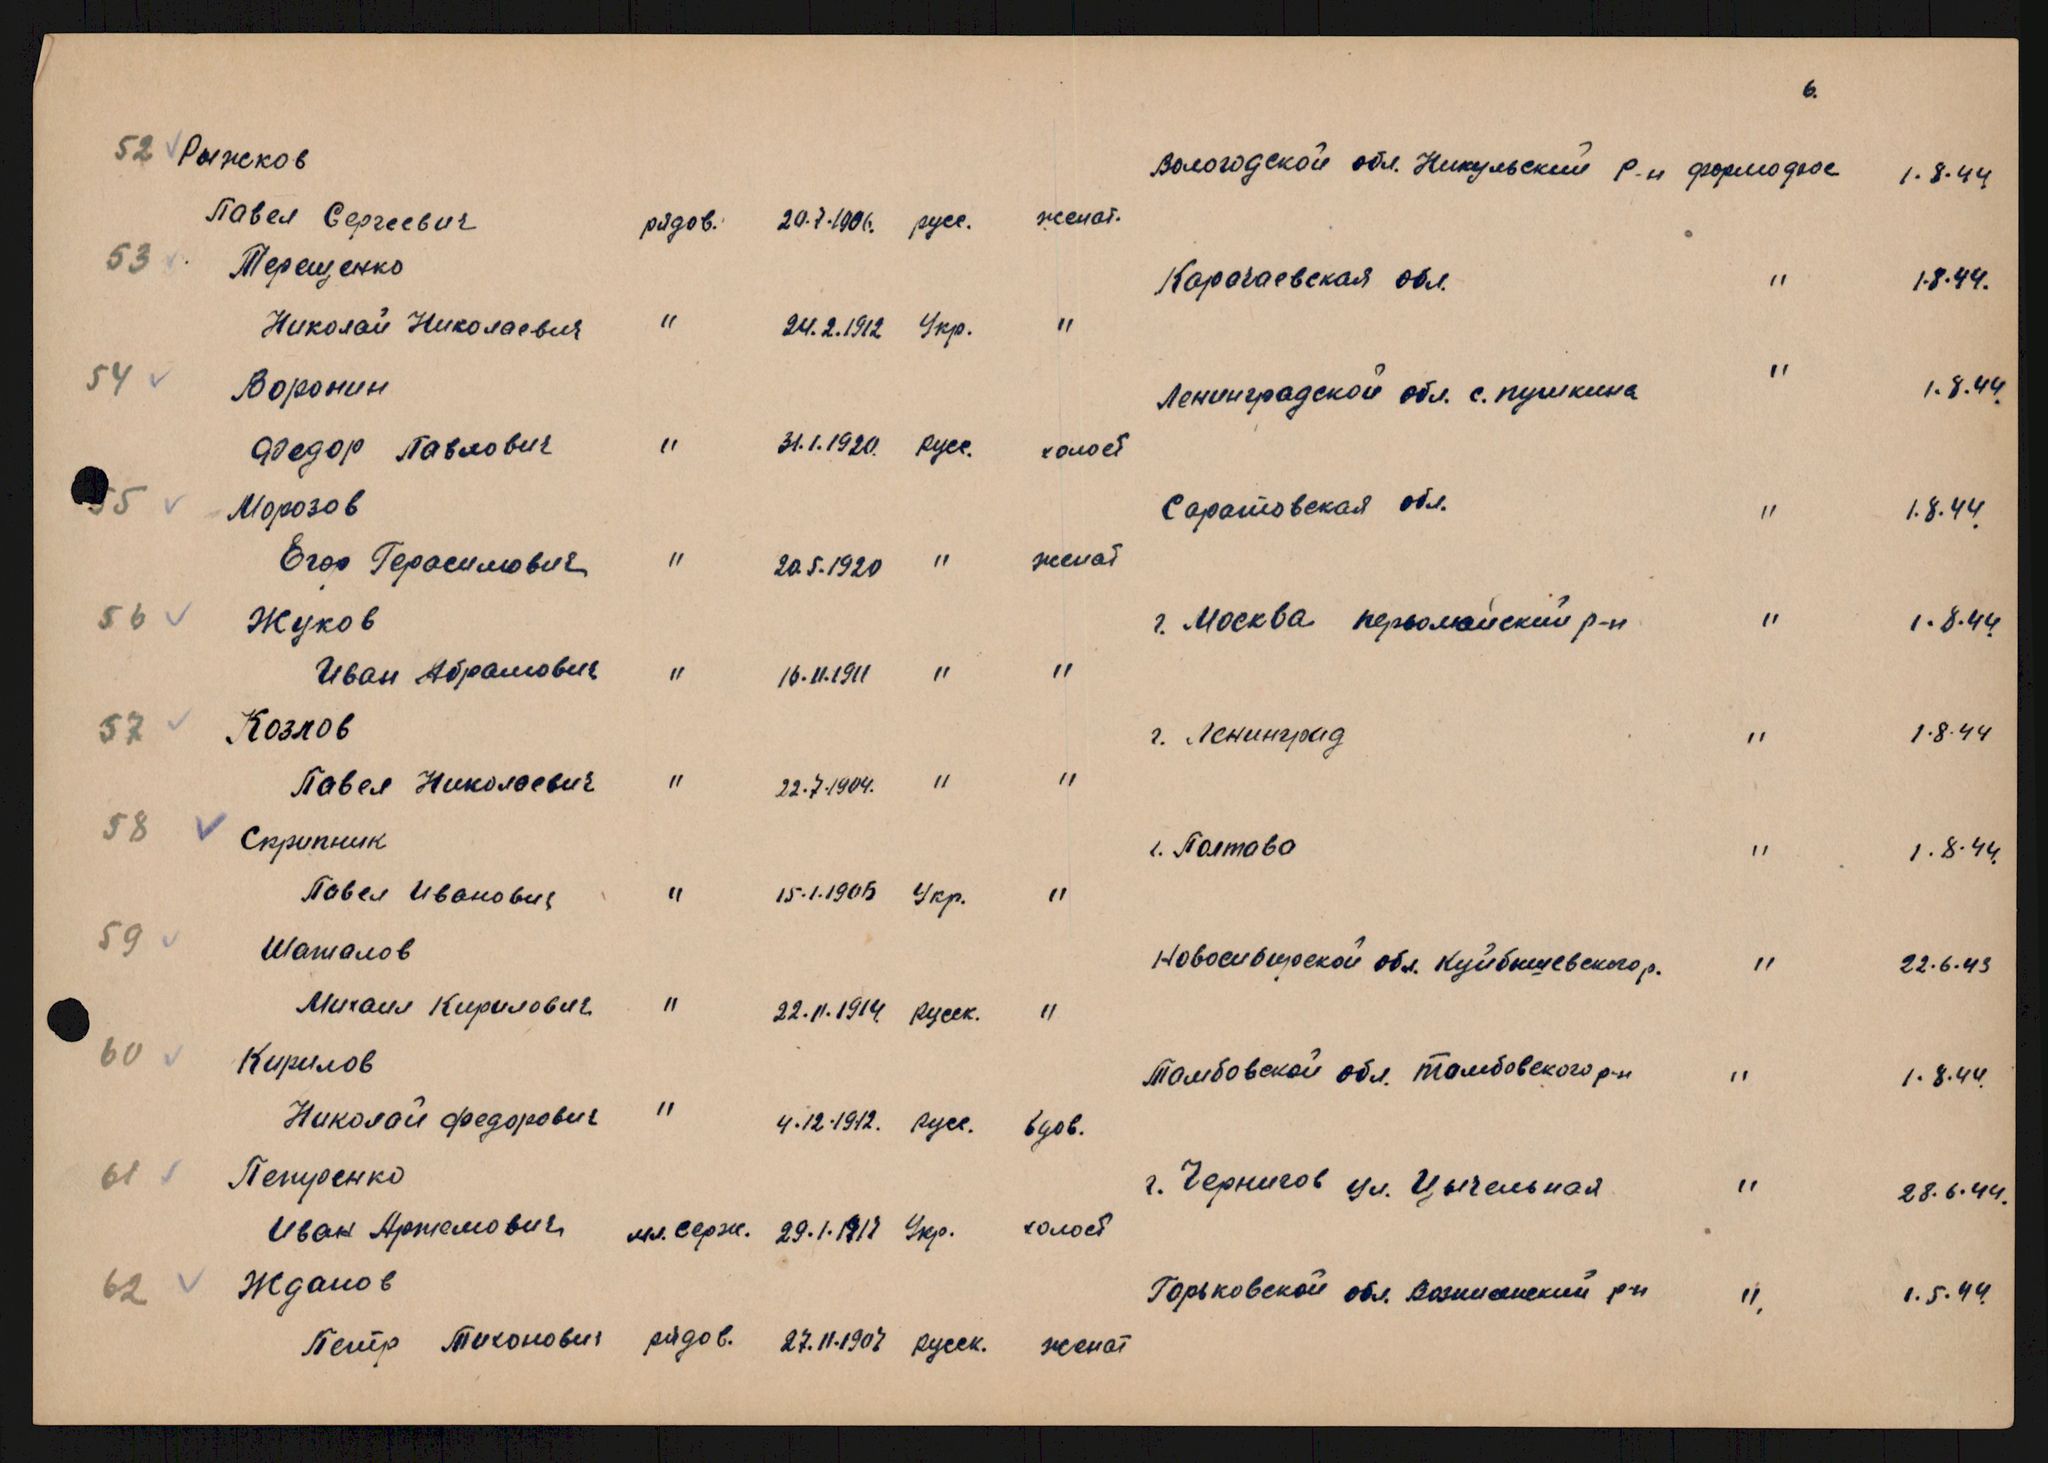 6.
52 ✓ Рыжков Вологодской обл. Никульский р-н 1.8.44
Павел Сергеевич рядов. 20.7.1906. русс. женат.
53 ✓ Терещенко Карачаевская обл. " 1.8.44.
Николай Николаевич " 24.2.1912 Укр. "
54 ✓ Воронин Ленинградской обл. с. пушкина " 1.8.44.
Федор Павлович " 31.1.1920. русс. холост
55 ✓ Морозов Саратовская обл. " 1.8.44.
Егор Герасимович " 20.5.1920 " женат
56 ✓ Жуков г. Москва первомайский р-н " 1.8.44.
Иван Абрамович " 16.11.1911 " "
57 ✓ Козлов г. Ленинград " 1.8.44
Павел Николаевич " 22.7.1904. " "
58 ✓ Скрипник г. Полтава " 1.8.44.
Павел Иванович " 15.1.1905 Укр. "
59 ✓ Шаталов Новосибирской обл. Куйбышевского р. " 22.6.43
Михаил Кирилович " 22.11.1914. русск. "
60 ✓ Кирилов Тамбовской обл. Тамбовского р-н " 1.8.44.
Николай федорович " 4.12.1912. русс. вдов.
61 ✓ Петренко г. Чернигов ул. " 28.6.44.
Иван Артемович мл. серж. 29.1.1917 Укр. холост
62 ✓ Жданов Горьковской обл. р-н " 1.5.44.
Петр Тихонович рядов. 27.11.1907 русск. женат